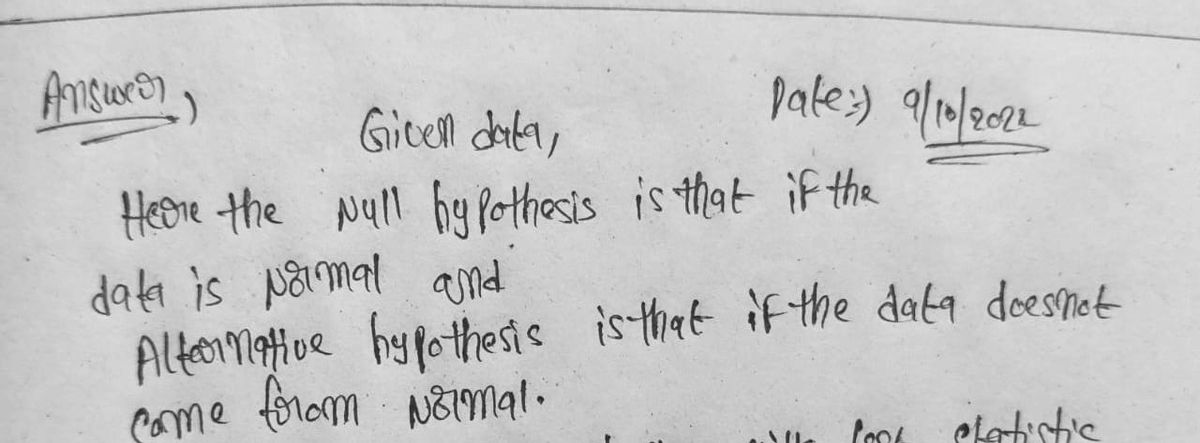 Answer,
Date:) 9/10/2022
Given data,
Here the Null hypothesis is that if the
data is Normal and
Alternative hypothesis is that if the data doesnot
came from Normal.
statistic